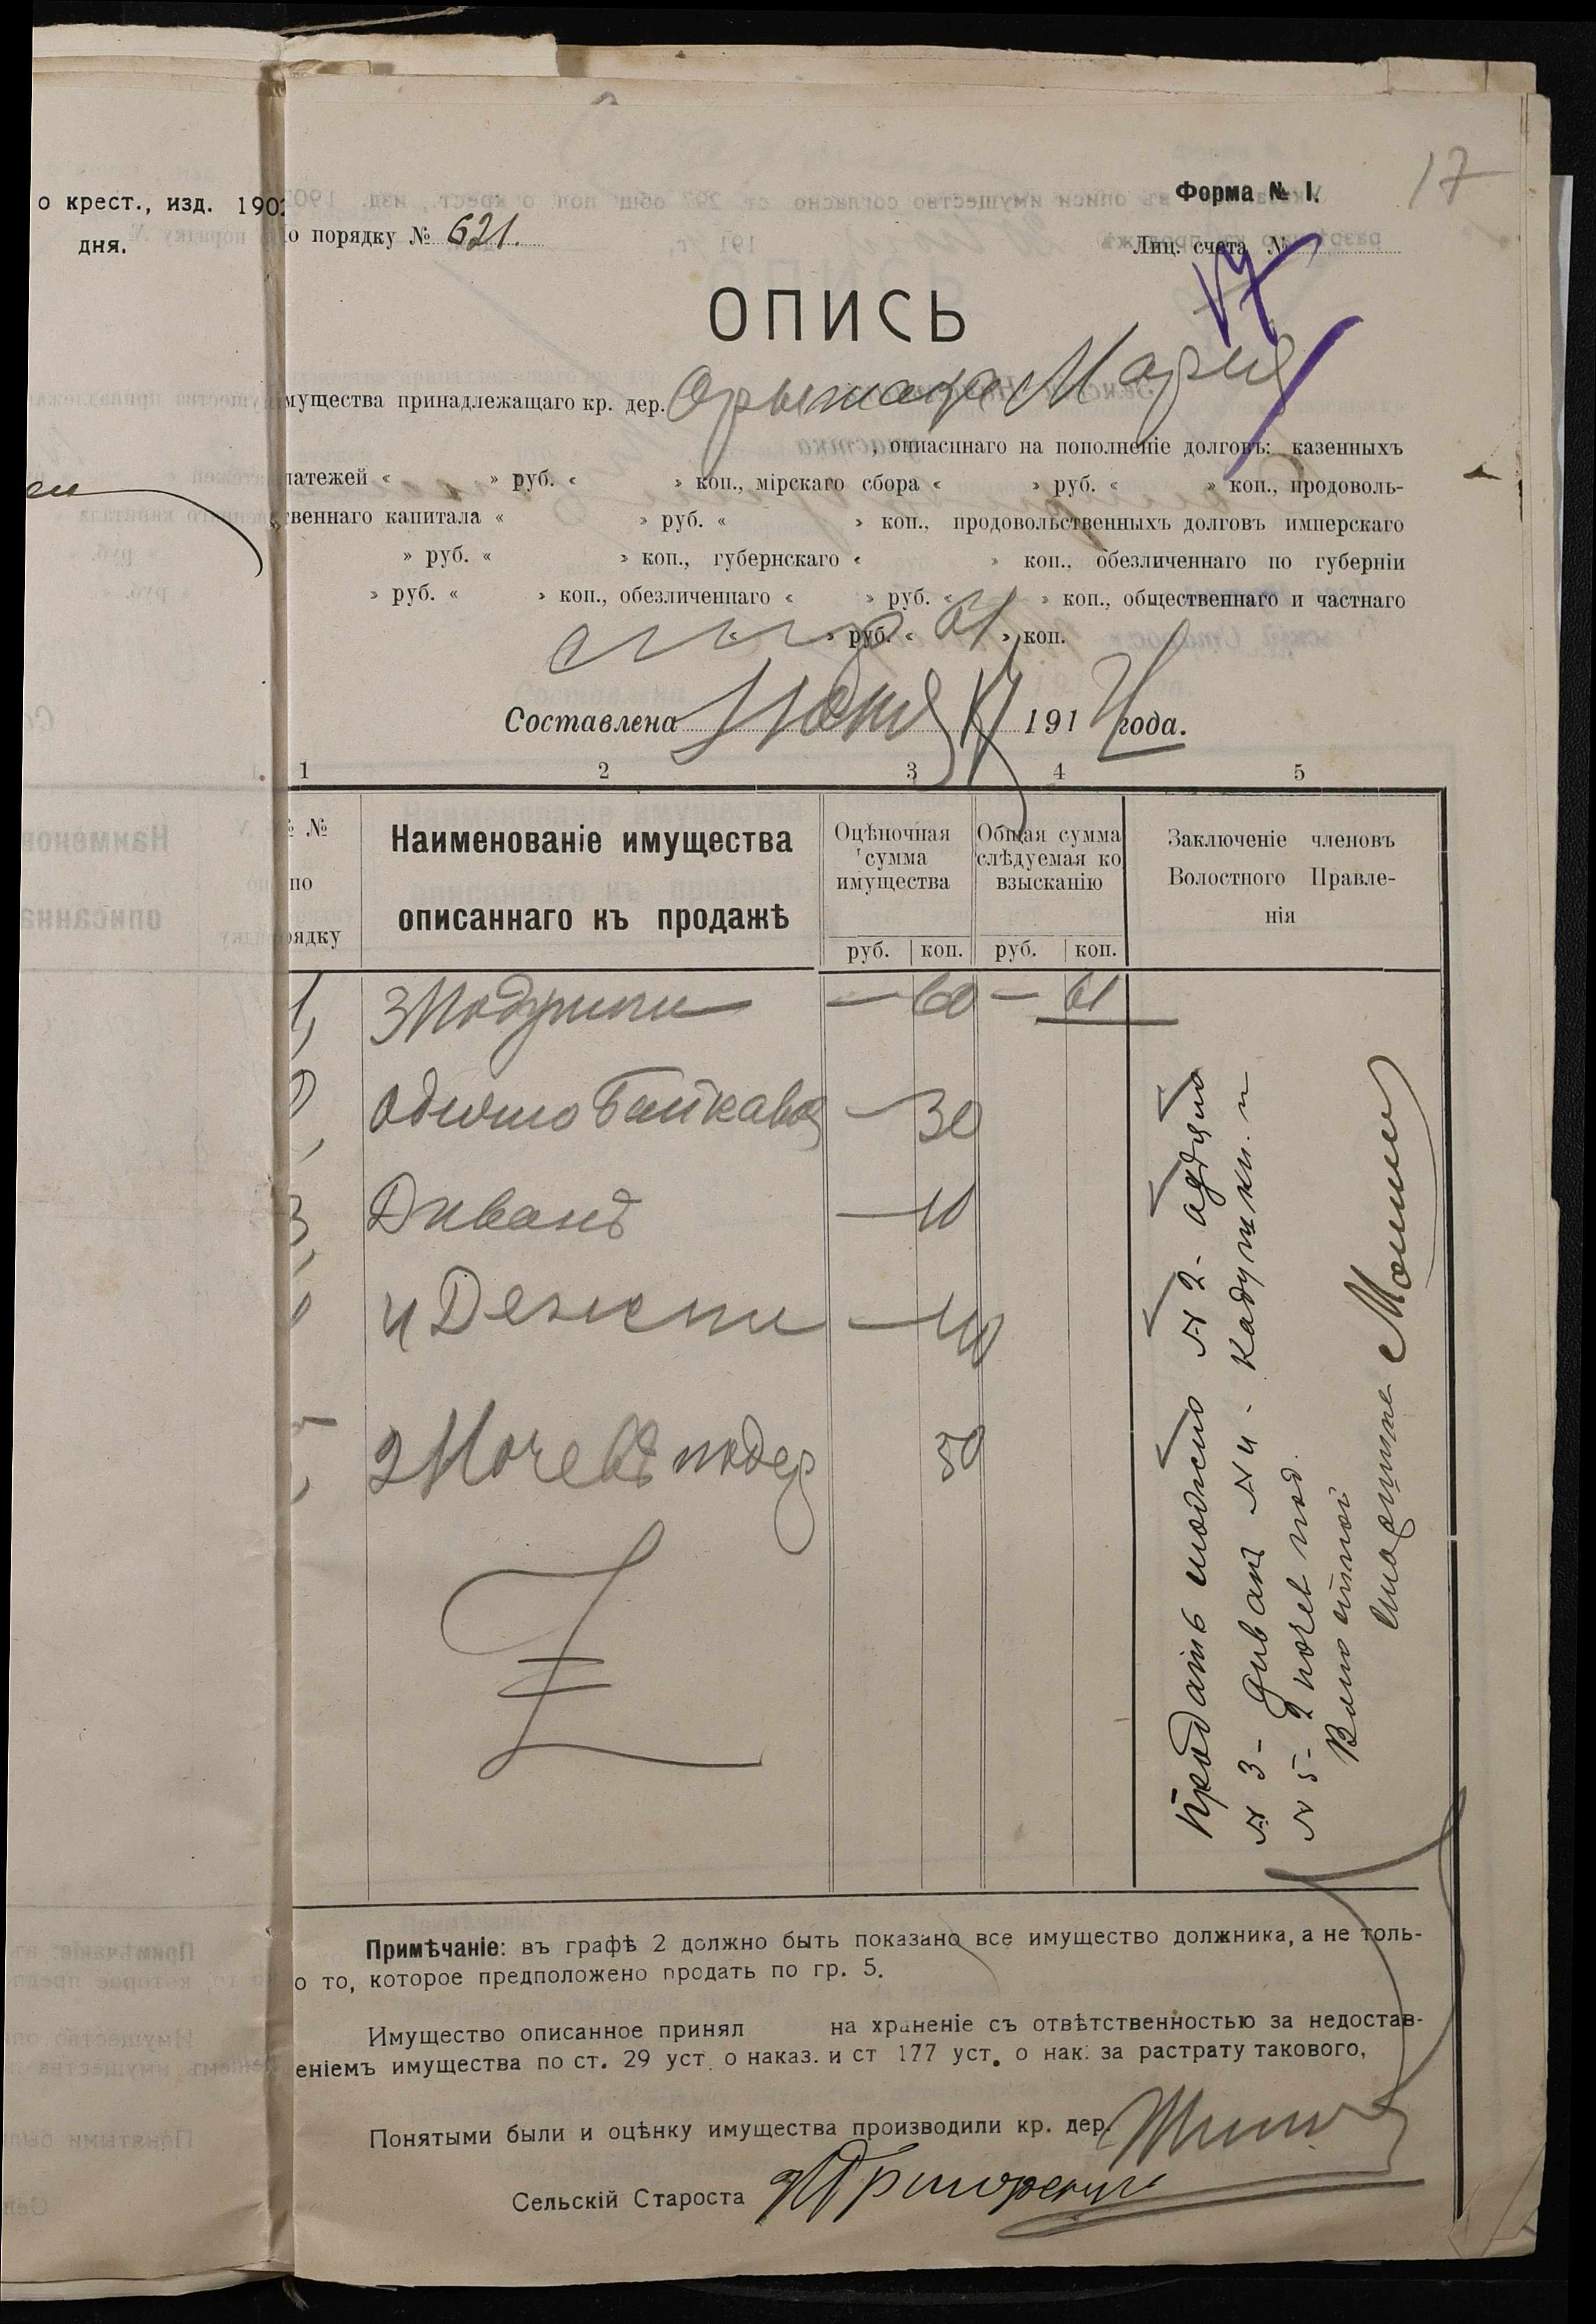 17
Форма № I.
о крест., изд. 190
дня.
о порядку № 621.
Лиц. счета №
17
ОПИСЬ
мущества принадлежащаго кр. дер. Марія
, описаннаго на пополненіе долговъ: казенныхъ
латежей « » руб. « » коп., мірскаго сбора « » руб. « » коп., продоволь-
твеннаго капитала « » руб. « » коп., продовольственныхъ долговъ имперскаго
» руб. « » коп., губернскаго « » коп., обезличеннаго по губерніи
» руб. « » коп., обезличеннаго « » руб. « » коп., общественнаго и частнаго
» руб. « 61 » коп.
Составлена 191 4 года.
1 2 3 4 5
№ №
по
рядку
Наименованіе имущества
описаннаго къ продажѣ
Оцѣночная
сумма
имущества
руб. коп.
Общая сумма
слѣдуемая ко
взысканію
руб. коп.
Заключеніе членовъ
Волостного Правле-
нія
1, 3 Подушки — 60 — 61
2, одѣяло байкавоя — 30
3, Диванъ — 10
4 Дежки — 40
5, 2 Ночевъ подер 50
Продать можно № 2 - одѣяло
№ 3 - диванъ № 4 - кадушки. и
№ 5 - 2 ночев под.
Примѣчаніе: въ графѣ 2 должно быть показано все имущество должника, а не толь-
о то, которое предположено продать по гр. 5.
Имущество описанное принял на храненіе съ отвѣтственностью за недостав-
еніемъ имущества по ст. 29 уст. о наказ. и ст 177 уст. о нак. за растрату такового,
Понятыми были и оцѣнку имущества производили кр. дер.
Сельскій Староста